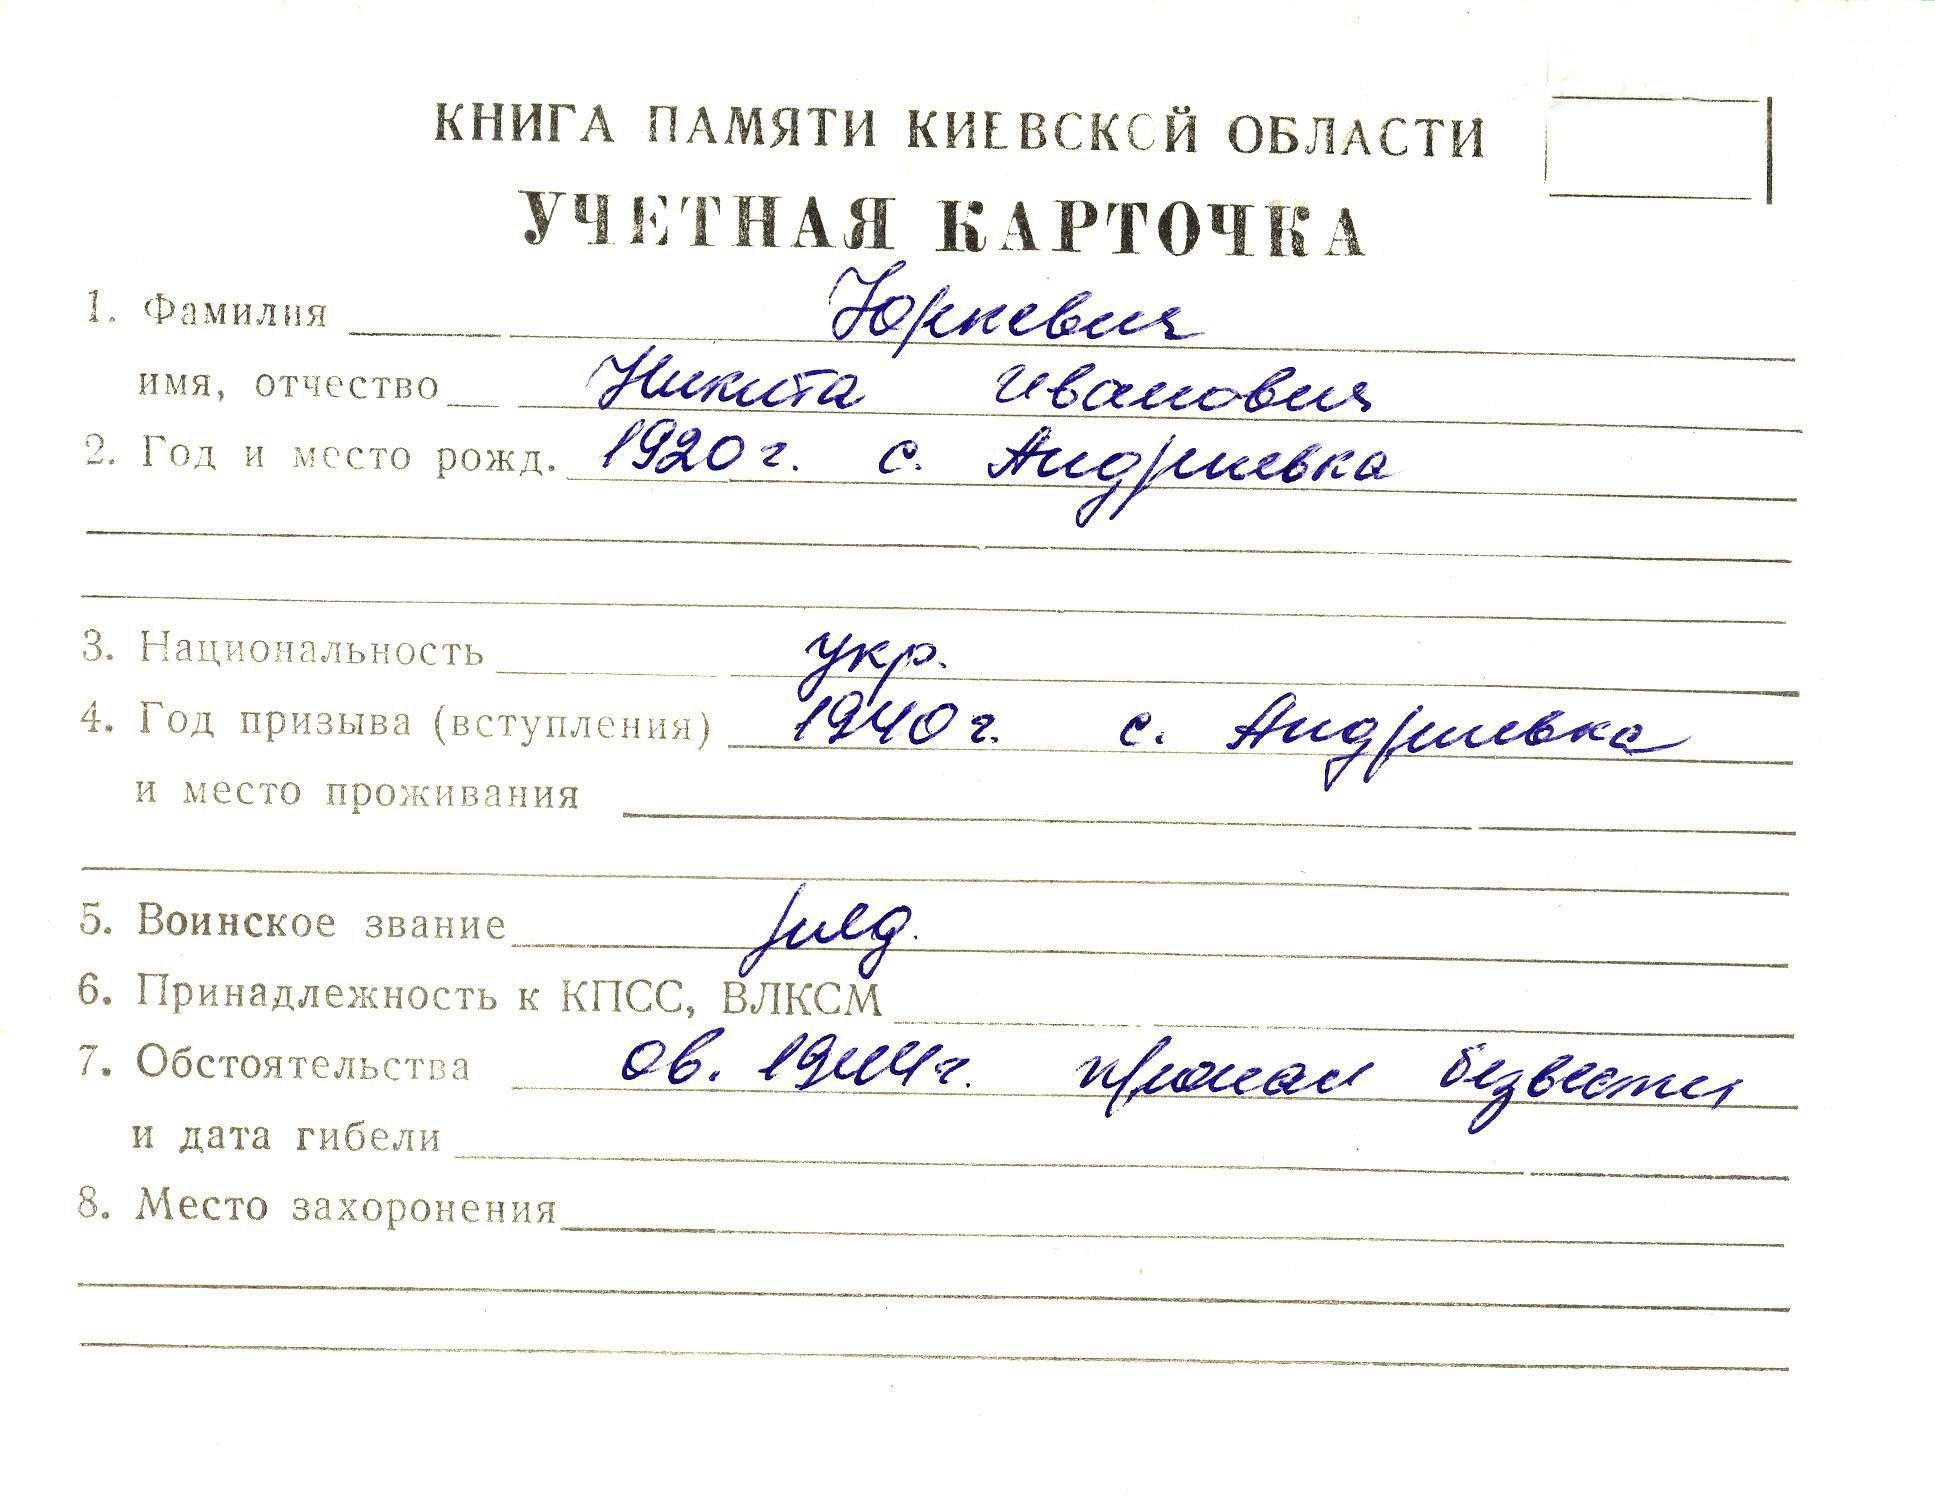 КНИГА ПАМЯТИ КИЕВСКОЙ ОБЛАСТИ
УЧЕТНАЯ КАРТОЧКА
1. Фамилия Юркевич
имя, отчество Никита Иванович
2. Год и место рожд. 1920 г. с. Андриевка
3. Национальность укр.
4. Год призыва (вступления) 1940 г. с. Андриевка
и место проживания
5. Воинское звание ряд.
6. Принадлежность к КПСС, ВЛКСМ
7. Обстоятельства 1944 г. пропал безвести
и дата гибели
8. Место захоронения